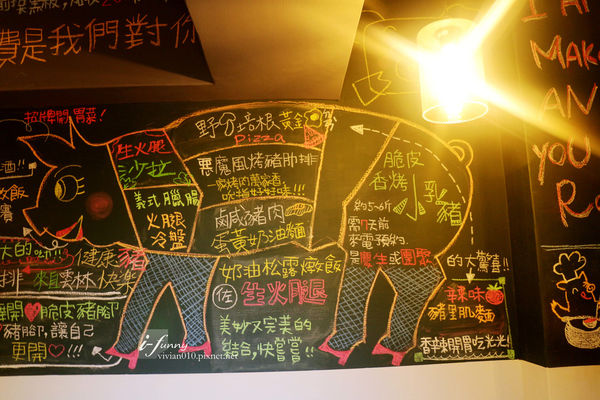 費是我們對你
I A
MAKE
AN
YOU
招牌開胃菜!
生火腿
沙拉
義式臘腸
火腿
冷盤
野ㄉ培根黃金
Pizza
惡魔風烤豬肋排
鹹鹹豬肉
蛋黃奶油麵
奶油松露燉飯
佐 生火腿
美妙又完美的
結合,快嘗嘗!!
脆皮
香烤小乳豬
約5-6斤
需7天前
來電預約
是慶生或團聚
的大驚喜!!
辣味
豬里肌麵
香辣開胃吃光光!
大的
健康豬
排 來自雲林快樂
脆皮豬腳
豬腳,讓自己
更開♡!!!
i-funny
vivian010.pixnet.net